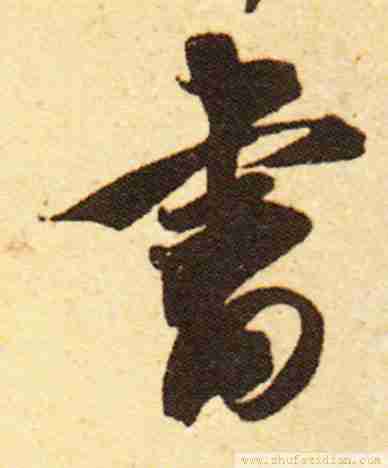 膚
www.shufazidian.com